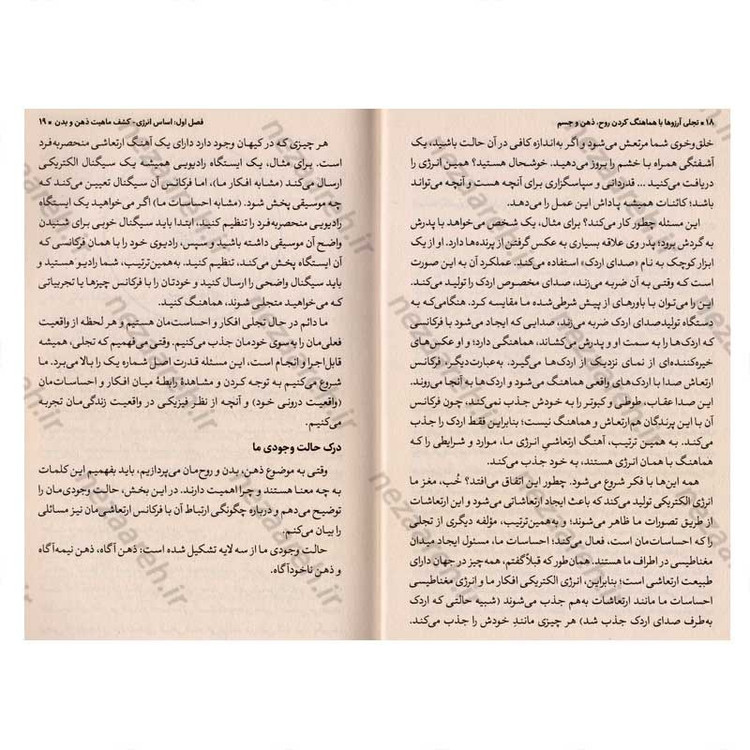 ۱۸ * تجلی آرزوها با هماهنگ کردن روح، ذهن و جسم
خلق‌وخوی شما مرتعش می‌شود و اگر به‌اندازه کافی در آن حالت باشید، یک
آشفتگی همراه با خشم را بروز می‌دهید. خوشحال هستید؟ همین انرژی را
دریافت می‌کنید ... قدردانی و سپاسگزاری برای آنچه هست و آنچه می‌تواند
باشد؛ کائنات همیشه پاداش این عمل را می‌دهد.
این مسئله چطور کار می‌کند؟ برای مثال، یک شخص می‌خواهد با پدرش
به گردش برود؛ پدر وی علاقه بسیاری به عکس گرفتن از پرنده‌ها دارد. او از یک
ابزار کوچک به نام «صدای اردک» استفاده می‌کند. عملکرد آن به این صورت
است که وقتی به آن ضربه می‌زند، صدای مخصوص اردک را تولید می‌کند.
این را می‌توان با باورهای از پیش شرطی‌شده ما مقایسه کرد. هنگامی‌که به
دستگاه تولید صدای اردک ضربه می‌زند، صدایی که ایجاد می‌شود با فرکانسی
که اردک‌ها را به سمت او و پدرش می‌کشاند، هماهنگی دارد؛ و او عکس‌های
خیره‌کننده‌ای از نمای نزدیک از اردک‌ها می‌گیرد. به‌عبارت‌دیگر، فرکانس
ارتعاش صدا با اردک‌های واقعی هماهنگ می‌شود و اردک‌ها به آنجا می‌روند.
این صدا عقاب، طوطی و کبوتر را به خودش جذب نمی‌کند، چون فرکانس
آن با این پرندگان هم ارتعاش و هماهنگ نیست؛ بنابراین فقط اردک را جذب
می‌کند. به همین ترتیب، آهنگ ارتعاشیِ انرژی ما، موارد و شرایطی را که
هماهنگ با همان انرژی هستند، به خود جذب می‌کند.
همه این‌ها با فکر شروع می‌شود. چطور این اتفاق می‌افتد؟ خُب، مغز ما
انرژی الکتریکی تولید می‌کند که باعث ایجاد ارتعاشاتی می‌شود و این ارتعاشات
از طریق تصورات ما ظاهر می‌شوند؛ و به‌همین‌ترتیب، مؤلفه دیگری از تجلی
را که احساسات‌مان است، فعال می‌کند؛ احساسات ما، مسئول ایجاد میدان
مغناطیسی در اطراف ما هستند. همان‌طور که قبلاً گفتم، همه‌چیز در جهان دارای
طبیعت ارتعاشی است؛ بنابراین، انرژی الکتریکی افکار ما و انرژی مغناطیسی
احساسات ما مانند ارتعاشات به‌هم جذب می‌شوند (شبیه حالتی که اردک
به‌طرف صدای اردک جذب شد) هر چیزی مانندِ خودش را جذب می‌کند.
فصل اول: اساس انرژی - کشف ماهیت ذهن و بدن * ۱۹
هر چیزی که در کیهان وجود دارد دارای یک آهنگ ارتعاشی منحصربه‌فرد
است. برای مثال، یک ایستگاه رادیویی همیشه یک سیگنال الکتریکی
ارسال می‌کند (مشابه افکار ما)، اما فرکانس آن سیگنال تعیین می‌کند که
چه موسیقی پخش شود. (مشابه احساسات ما) اگر می‌خواهید یک ایستگاه
رادیویی منحصربه‌فرد را تنظیم کنید، ابتدا باید سیگنال خوبی برای شنیدن
واضح آن موسیقی داشته باشید و سپس، رادیوی خود را با همان فرکانسی که
آن ایستگاه پخش می‌کند، تنظیم کنید. به همین‌ترتیب، شما رادیو هستید و
باید سیگنال واضحی را ارسال کنید و خودتان را با فرکانس چیزها یا تجربیاتی
که می‌خواهید متجلی شوند، هماهنگ کنید.
ما دائم در حال تجلی افکار و احساسات‌مان هستیم و هر لحظه از واقعیت
فعلی‌مان را به‌سوی خودمان جذب می‌کنیم. وقتی می‌فهمیم که تجلی، همیشه
قابل‌اجرا و انجام است، این مسئله قدرت اصل شماره یک را بالا می‌برد. ما
شروع می‌کنیم به توجه کردن و مشاهدهٔ رابطهٔ میان افکار و احساسات‌مان
(واقعیت درونی خود) و آنچه از نظر فیزیکی در واقعیت زندگی‌مان تجربه
می‌کنیم.
درک حالت وجودی ما
وقتی به موضوع ذهن، بدن و روح‌مان می‌پردازیم، باید بفهمیم این کلمات
به چه معنا هستند و چرا اهمیت دارند. در این بخش، حالت وجودی‌مان را
توضیح می‌دهم و درباره چگونگی ارتباط آن با فرکانس ارتعاشی‌مان نیز مسائلی
را بیان می‌کنم.
حالت وجودی ما از سه لایه تشکیل شده است: ذهن آگاه، ذهن نیمه‌آگاه
و ذهن ناخودآگاه.
nezaareh.ir